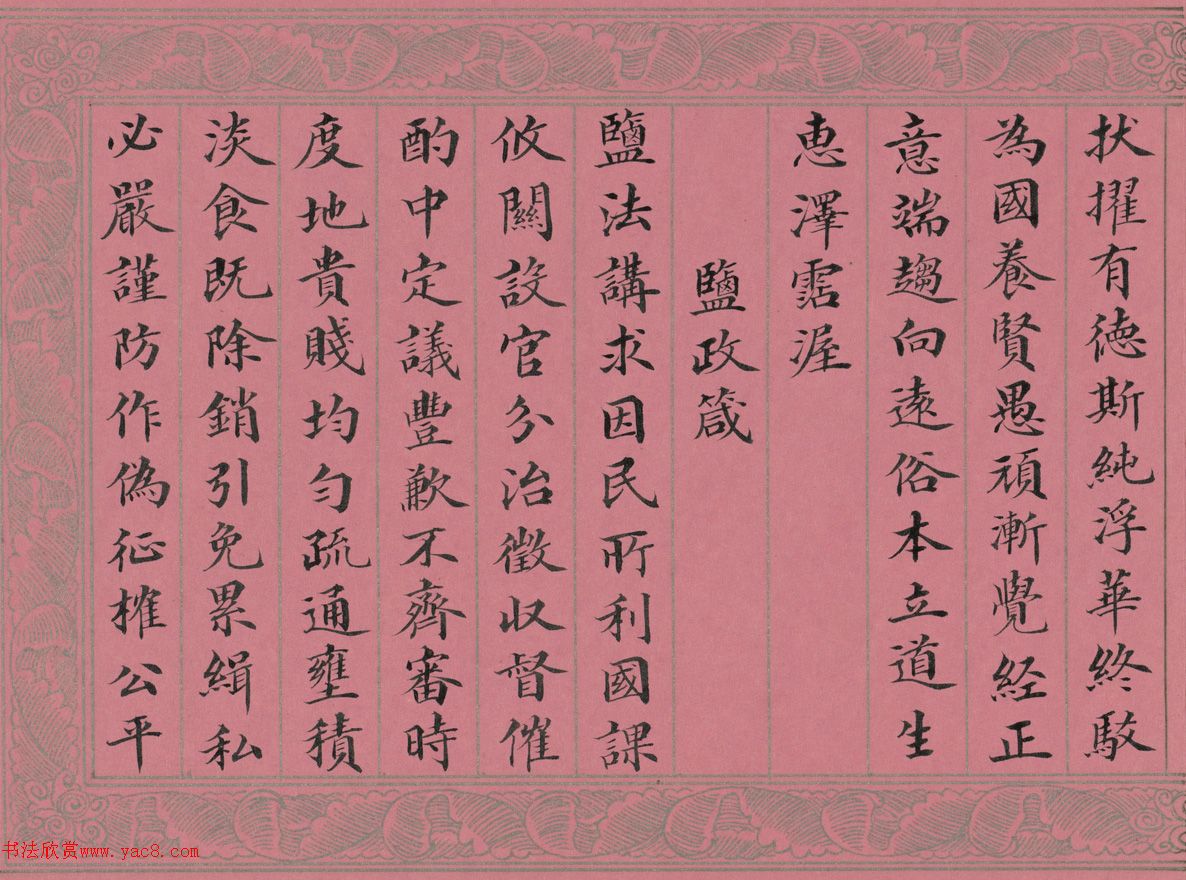 狀擢有德斯純浮華終駁
為國養賢愚頑漸覺經正
意端趨向遠俗本立道生
惠澤霑渥
鹽政箴
鹽法講求因民所利國課
攸關設官分治徵收督催
酌中定議豐歉不齊審時
度地貴賤均勻疏通壅積
淡食既除銷引免累緝私
必嚴謹防作偽征榷公平
书法欣赏www.yac8.com